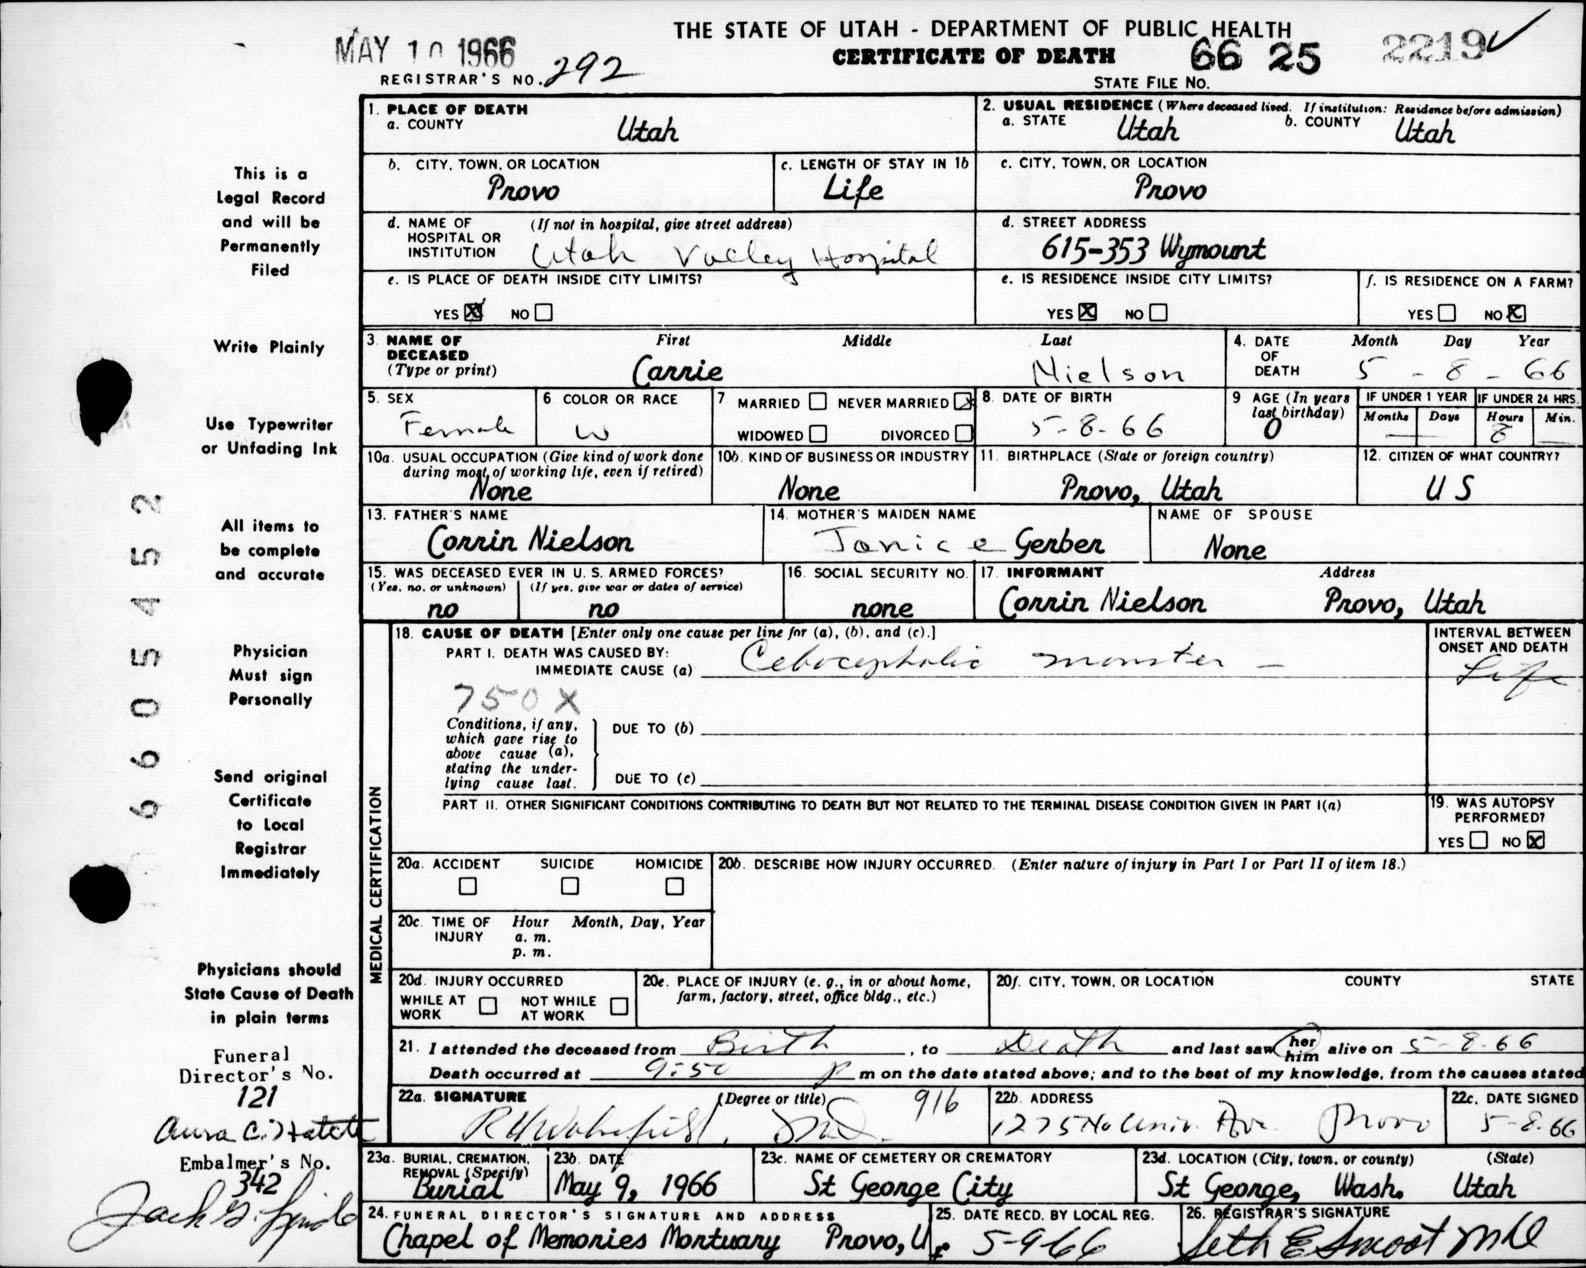 THE STATE OF UTAH - DEPARTMENT OF PUBLIC HEALTH
CERTIFICATE OF DEATH
MAY 10 1966
REGISTRAR'S NO. 292
66 25 2219
STATE FILE NO.
1. PLACE OF DEATH
a. COUNTY Utah
2. USUAL RESIDENCE (Where deceased lived. If institution: Residence before admission)
a. STATE Utah b. COUNTY Utah
b. CITY, TOWN, OR LOCATION Provo
c. LENGTH OF STAY IN 1b Life
c. CITY, TOWN, OR LOCATION Provo
d. NAME OF HOSPITAL OR INSTITUTION (If not in hospital, give street address) Utah Valley Hospital
d. STREET ADDRESS 615-353 Wymount
e. IS PLACE OF DEATH INSIDE CITY LIMITS?
YES X NO
e. IS RESIDENCE INSIDE CITY LIMITS?
YES X NO
f. IS RESIDENCE ON A FARM?
YES NO X
3. NAME OF DECEASED (Type or print)
First Middle Last
Carrie Nielson
4. DATE OF DEATH Month Day Year
5 - 8 - 66
5. SEX Female
6 COLOR OR RACE W
7 MARRIED NEVER MARRIED X
WIDOWED DIVORCED
8. DATE OF BIRTH 5-8-66
9 AGE (In years last birthday) 0
IF UNDER 1 YEAR Months Days
IF UNDER 24 HRS. Hours Min.
8
10a. USUAL OCCUPATION (Give kind of work done during most of working life, even if retired) None
10b. KIND OF BUSINESS OR INDUSTRY None
11. BIRTHPLACE (State or foreign country) Provo, Utah
12. CITIZEN OF WHAT COUNTRY? U S
13. FATHER'S NAME Corrin Nielson
14. MOTHER'S MAIDEN NAME Janice Gerber
NAME OF SPOUSE None
15. WAS DECEASED EVER IN U. S. ARMED FORCES?
(Yes, no, or unknown) (If yes, give war or dates of service)
no no
16. SOCIAL SECURITY NO. none
17. INFORMANT Address
Corrin Nielson Provo, Utah
MEDICAL CERTIFICATION
18. CAUSE OF DEATH [Enter only one cause per line for (a), (b), and (c).]
PART I. DEATH WAS CAUSED BY:
IMMEDIATE CAUSE (a) Cebocephalic monster -
INTERVAL BETWEEN ONSET AND DEATH
Life
750X
Conditions, if any, which gave rise to above cause (a), stating the underlying cause last.
DUE TO (b)
DUE TO (c)
PART II. OTHER SIGNIFICANT CONDITIONS CONTRIBUTING TO DEATH BUT NOT RELATED TO THE TERMINAL DISEASE CONDITION GIVEN IN PART I(a)
19. WAS AUTOPSY PERFORMED?
YES NO X
20a. ACCIDENT SUICIDE HOMICIDE
20b. DESCRIBE HOW INJURY OCCURRED. (Enter nature of injury in Part I or Part II of item 18.)
20c. TIME OF INJURY Hour Month, Day, Year
a. m.
p. m.
20d. INJURY OCCURRED
WHILE AT WORK NOT WHILE AT WORK
20e. PLACE OF INJURY (e. g., in or about home, farm, factory, street, office bldg., etc.)
20f. CITY, TOWN, OR LOCATION COUNTY STATE
21. I attended the deceased from Birth, to Death and last saw her him alive on 5-8-66
Death occurred at 9:50 p m on the date stated above; and to the best of my knowledge, from the causes stated
22a. SIGNATURE (Degree or title) 916
R H Wakefield, MD.
22b. ADDRESS
1275 No Univ. Ave Provo
22c. DATE SIGNED
5-8-66
23a. BURIAL, CREMATION, REMOVAL (Specify) Burial
23b. DATE May 9, 1966
23c. NAME OF CEMETERY OR CREMATORY St George City
23d. LOCATION (City, town, or county) (State)
St George, Wash. Utah
24. FUNERAL DIRECTOR'S SIGNATURE AND ADDRESS
Chapel of Memories Mortuary Provo, Ut
25. DATE RECD. BY LOCAL REG. 5-9-66
26. REGISTRAR'S SIGNATURE
Seth E Smoot MD
This is a
Legal Record
and will be
Permanently
Filed
Write Plainly
Use Typewriter
or Unfading Ink
All items to
be complete
and accurate
Physician
Must sign
Personally
Send original
Certificate
to Local
Registrar
Immediately
Physicians should
State Cause of Death
in plain terms
Funeral
Director's No.
121
C. Hatch
Embalmer's No.
342
Jack G.
66054 52